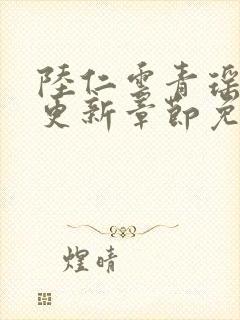 陸仁雲青瑶
更新章節免
煌晴